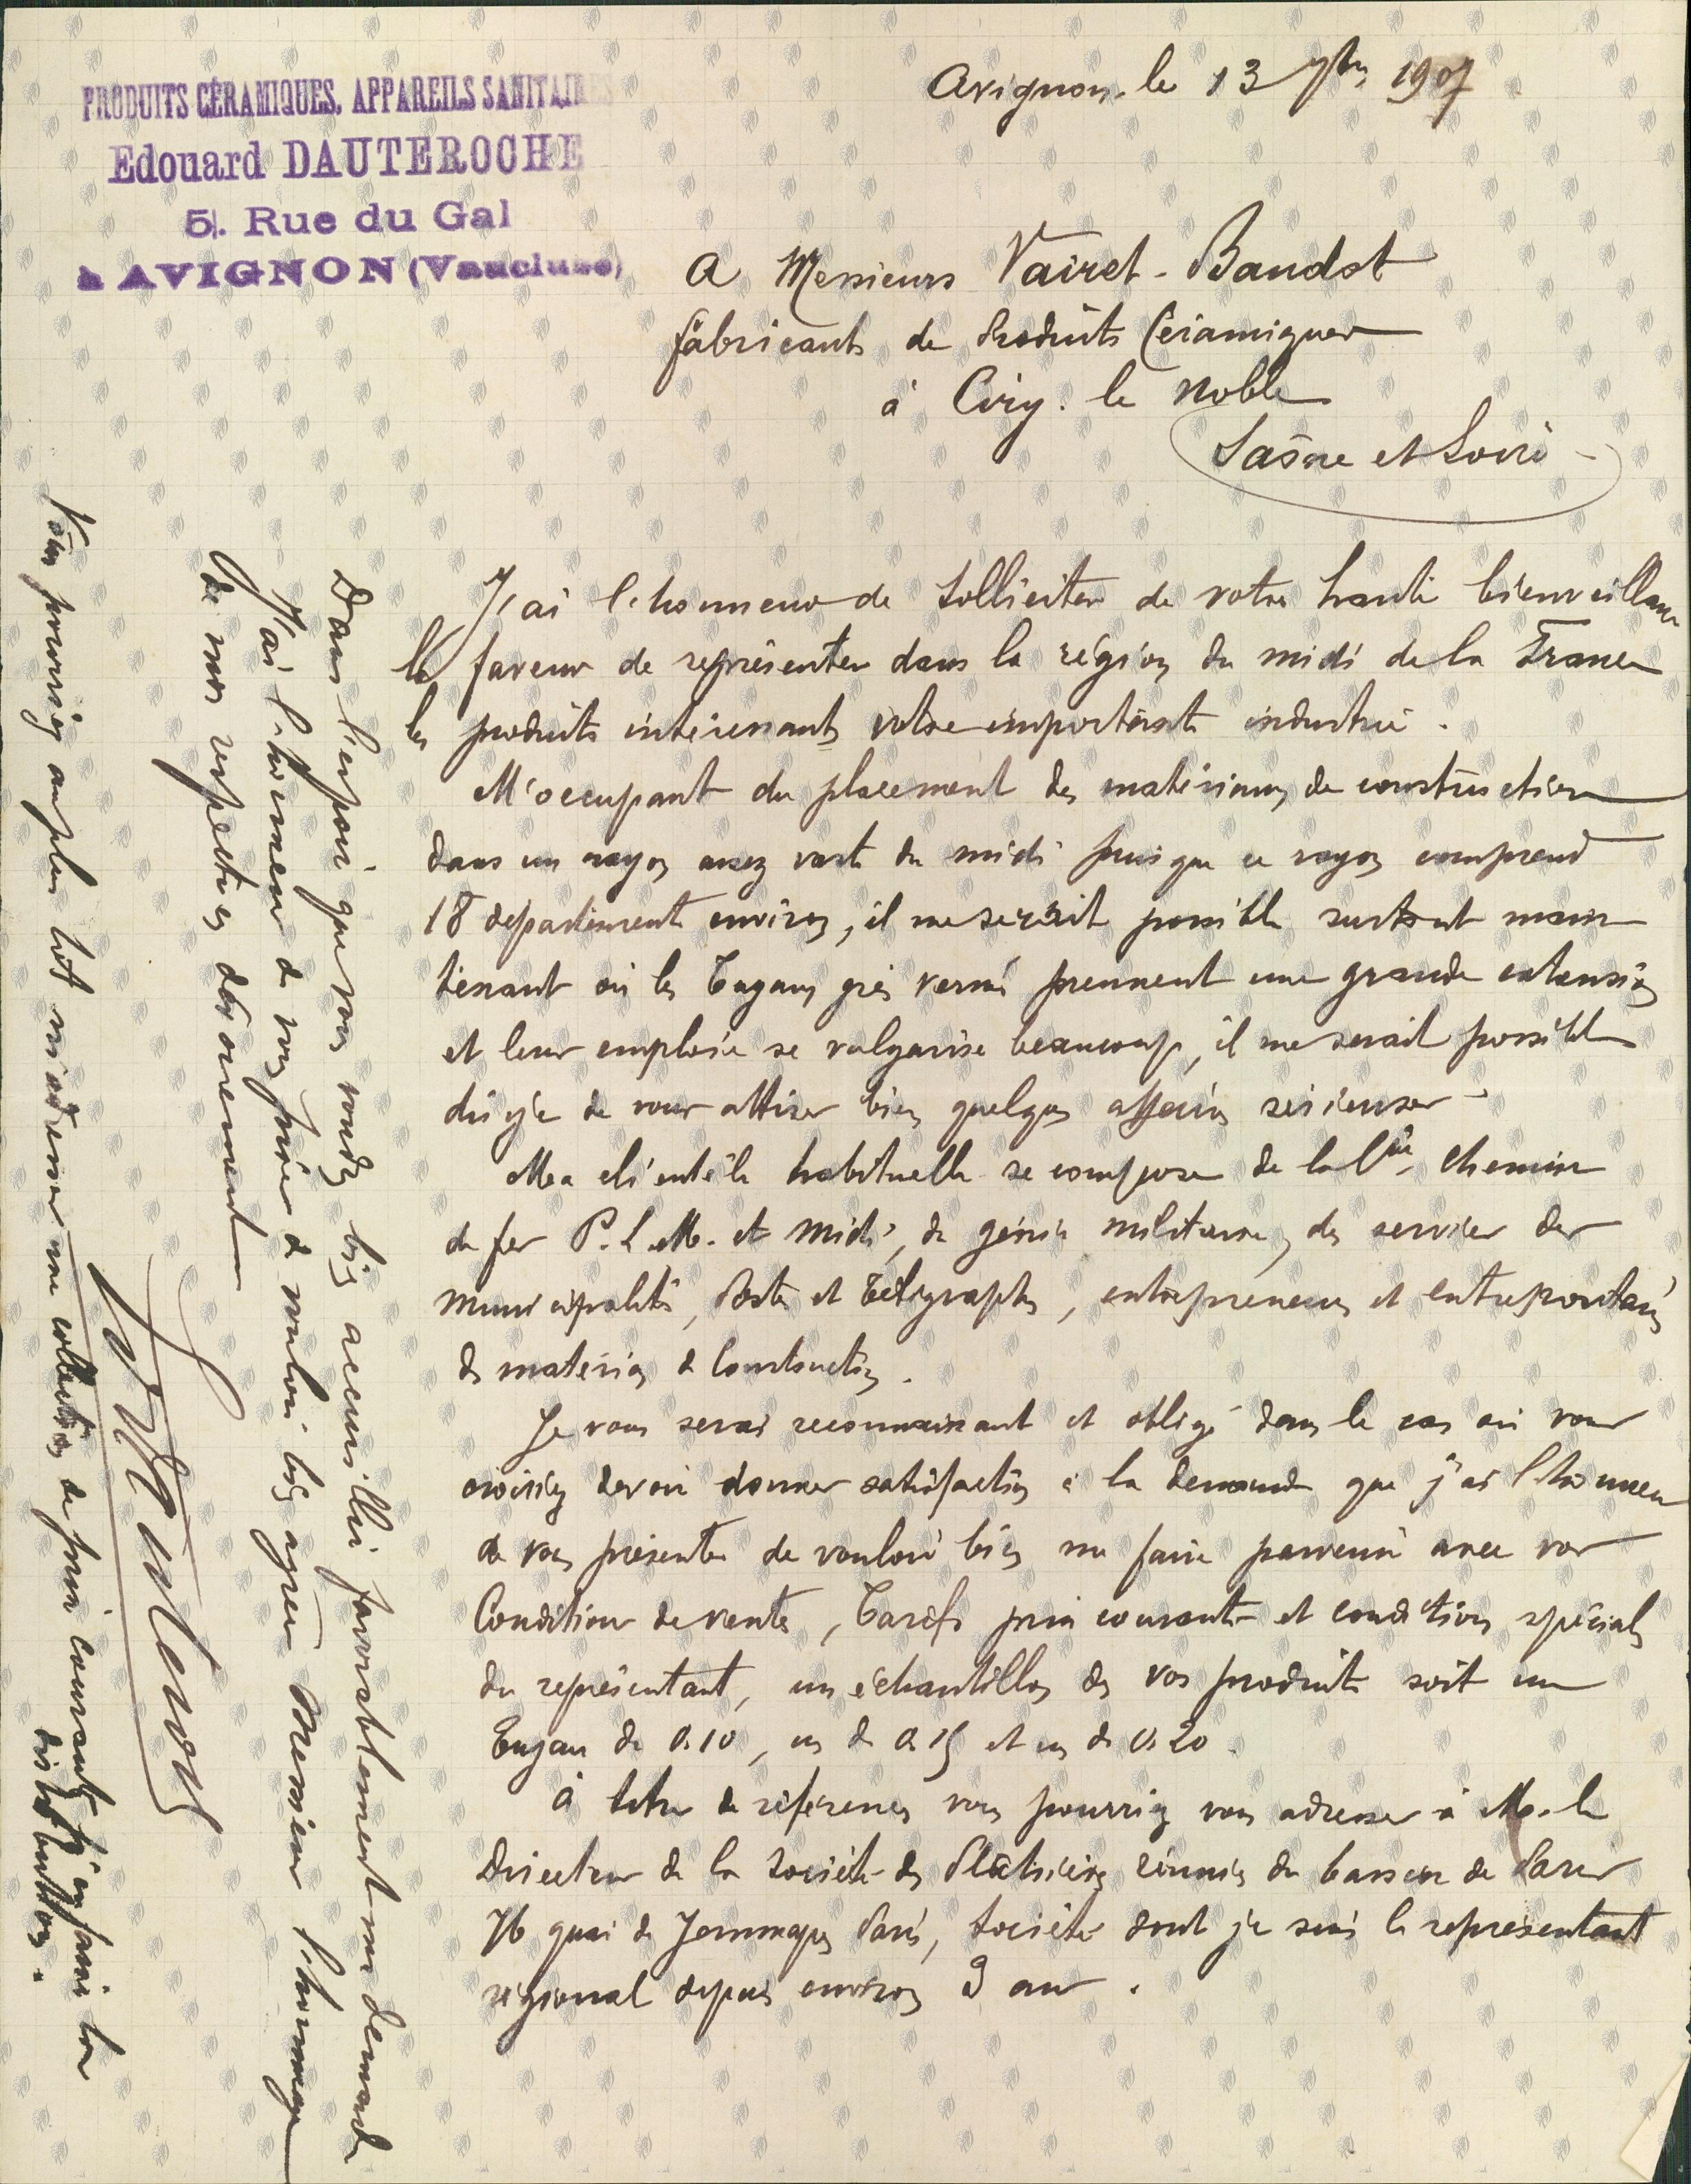 PRODUITS CÉRAMIQUES. APPAREILS SANITAIRES
Edouard DAUTEROCHE
5. Rue du Gal
à AVIGNON (Vaucluse)
Avignon. le 13 7bre 1907
A Messieurs Vairet-Baudot
fabricants de Produits Céramiques
à Ciry. le Noble
Saône et Loire
J'ai l'honneur de solliciter de votre haute bienveillance
la faveur de représenter dans la région du midi de la France
les produits intéressants votre importante industrie.
M'occupant du placement des matériaux de construction
dans un rayon assez vaste du midi puisque ce rayon comprend
18 departement environ, il me serait possible surtout main
tenant où les Tuyaux grès vernis prennent une grande extension
et leur emploie se vulgarise beaucoup, il me serait possible
dis je de vous attirer bien quelques affaires sérieuses
Ma clientèle habituelle se compose de la Cie chemins
de fer P.L.M. et Midi, du génie militaire, des services des
municipalités, Postes et Télégraphes, entrepreneurs et entrepositaires
de matériaux de Construction.
Je vous serai reconnaissant et obligé dans le cas où vous
croiriez devoir donner satisfaction à la demande que j'ai l'honneur
de vous présenter de vouloir bien me faire parvenir avec vos
Conditions de vente, Tarifs prix courants et conditions spéciales
du représentant, un échantillon de vos produits soit un
Tuyau de 0.10, un de 0.15 et un de 0.20.
à titre de références vous pourriez vous adresser à M. le
Directeur de la Société des Plâtrières réunies du bassin de Paris
76 quai de Jemmapes Paris, Société dont je suis le représentant
régional depuis environ 9 ans.
Dans l'espoir que vous voudrez bien accueillir favorablement ma demande
J'ai l'honneur de vous prier de vouloir bien agréer Messieurs l'hommage
de mes respectueux dévouements
Vous pourriez au plus tôt m'adresser une collection de prix courants j'en ferai la
distribution.